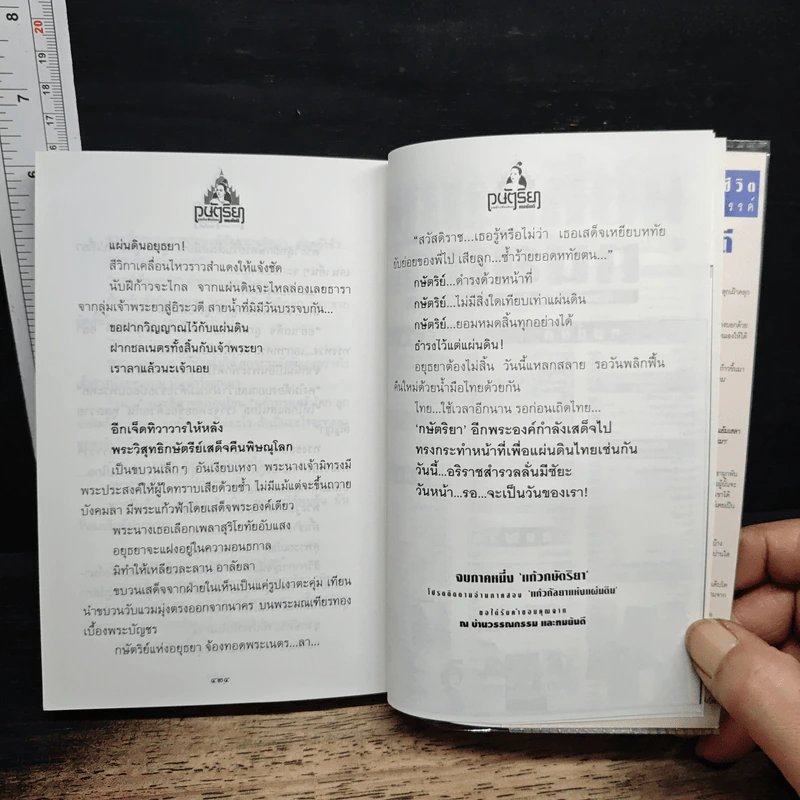 กษัตริยา
แผ่นดินอยุธยา!
สีวิกาเคลื่อนไหวราวสำแดงให้แจ้งชัด
นับฝีก้าวจะไกล จากแผ่นดินจะไหลล่องเลยธารา
จากลุ่มเจ้าพระยาสู่อิระวดี สายน้ำที่มิมีวันบรรจบกัน...
ขอฝากวิญญาณไว้กับแผ่นดิน
ฝากชลเนตรทั้งสิ้นกับเจ้าพระยา
เราลาแล้วนะเจ้าเอย
อีกเจ็ดทิวาวารให้หลัง
พระวิสุทธิกษัตรีย์เสด็จคืนพิษณุโลก
เป็นขบวนเล็กๆ อันเงียบเหงา พระนางเจ้ามิทรงมี
พระประสงค์ให้ผู้ใดทราบเสียด้วยซ้ำ ไม่มีแม้แต่จะขึ้นถวาย
บังคมลา มีพระแก้วฟ้าโดยเสด็จพระองค์เดียว
พระนางเธอเลือกเพลาสุริโยทัยอับแสง
อยุธยาจะแฝงอยู่ในความอนธกาล
มิทำให้เหลียวละลาน อาลัยลา
ขบวนเสด็จจากฝ่ายในเห็นเป็นแค่รูปเงาตะคุ่ม เทียน
นำขบวนวับแวมมุ่งตรงออกจากนาคร บนพระมณเฑียรทอง
เบื้องพระบัญชร
กษัตริย์แห่งอยุธยา จ้องทอดพระเนตร...ลา...
กษัตริยา
"สวัสดิราช...เธอรู้หรือไม่ว่า เธอเสด็จเหยียบหทัย
ยับย่อยของพี่ไป เสียลูก...ซ้ำร้ายยอดหทัยตน..."
กษัตริย์...ดำรงด้วยหน้าที่
กษัตริย์...ไม่มีสิ่งใดเทียบเท่าแผ่นดิน
กษัตริย์...ยอมหมดสิ้นทุกอย่างได้
ธำรงไว้แต่แผ่นดิน!
อยุธยาต้องไม่สิ้น วันนี้แหลกสลาย รอวันพลิกฟื้น
คืนใหม่ด้วยน้ำมือไทยด้วยกัน
ไทย...ใช้เวลาอีกนาน รอก่อนเถิดไทย...
'กษัตริยา' อีกพระองค์กำลังเสด็จไป
ทรงกระทำหน้าที่เพื่อแผ่นดินไทยเช่นกัน
วันนี้...อริราชสำรวลลั่นมีชัยะ
วันหน้า...รอ...จะเป็นวันของเรา!
จบภาคหนึ่ง 'แก้วกษัตริยา'
โปรดติดตามอ่านภาคสอง 'แก้วกัลยาแห่งแผ่นดิน'
ขอได้รับคำขอบคุณจาก
ณ บ้านวรรณกรรม และทมยันตี